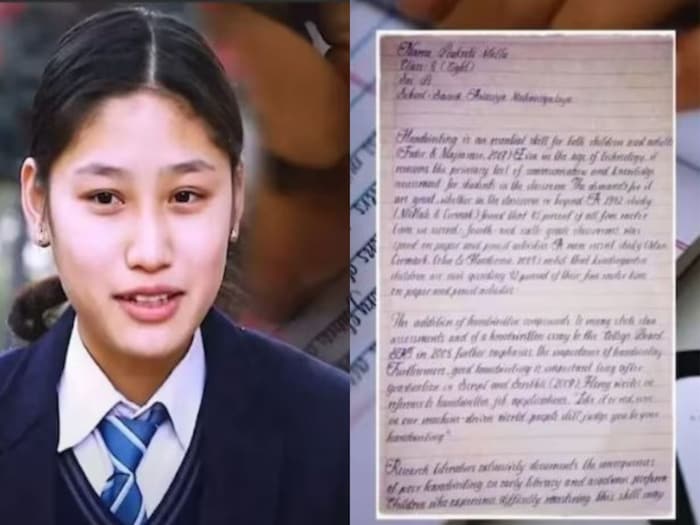 Name: Prakriti Malla
Class: 8 (Eight)
Sec: B
School: Sainik Awasiya Mahavidyalaya
Handwriting is an essential skill for both children and adults
(Feder & Majnemer, 2007) Even in the age of technology, it
remains the primary tool of communication and knowledge
assessment for students in the classroom. The demands for it
are great, whether in the classroom or beyond. A 1992 study
(McHale & Cermak) found that 85 percent of all fine motor
time in second- fourth- and sixth- grade classrooms was
spent on paper and pencil activities. A more recent study
Cermak, Cohn & Henderson, 2002) noted that kindergarten
children are now spending 42 percent of their fine motor time
on paper and pencil activities.
The addition of handwritten components to many state
assessments and of a handwritten essay to the College Board
SAT in 2005 further emphasize the importance of handwriting
Furthermore, good handwriting is important long after
graduation. In Script and Scribble (2009), Florey
reference to handwritten job applications, "Like it or not, even
in our machine-driven world, people still judge you by your
handwriting"
Research literature extensively documents the consequences
of poor handwriting on early literacy and academic perform
Children who experience difficulty mastering this skill may